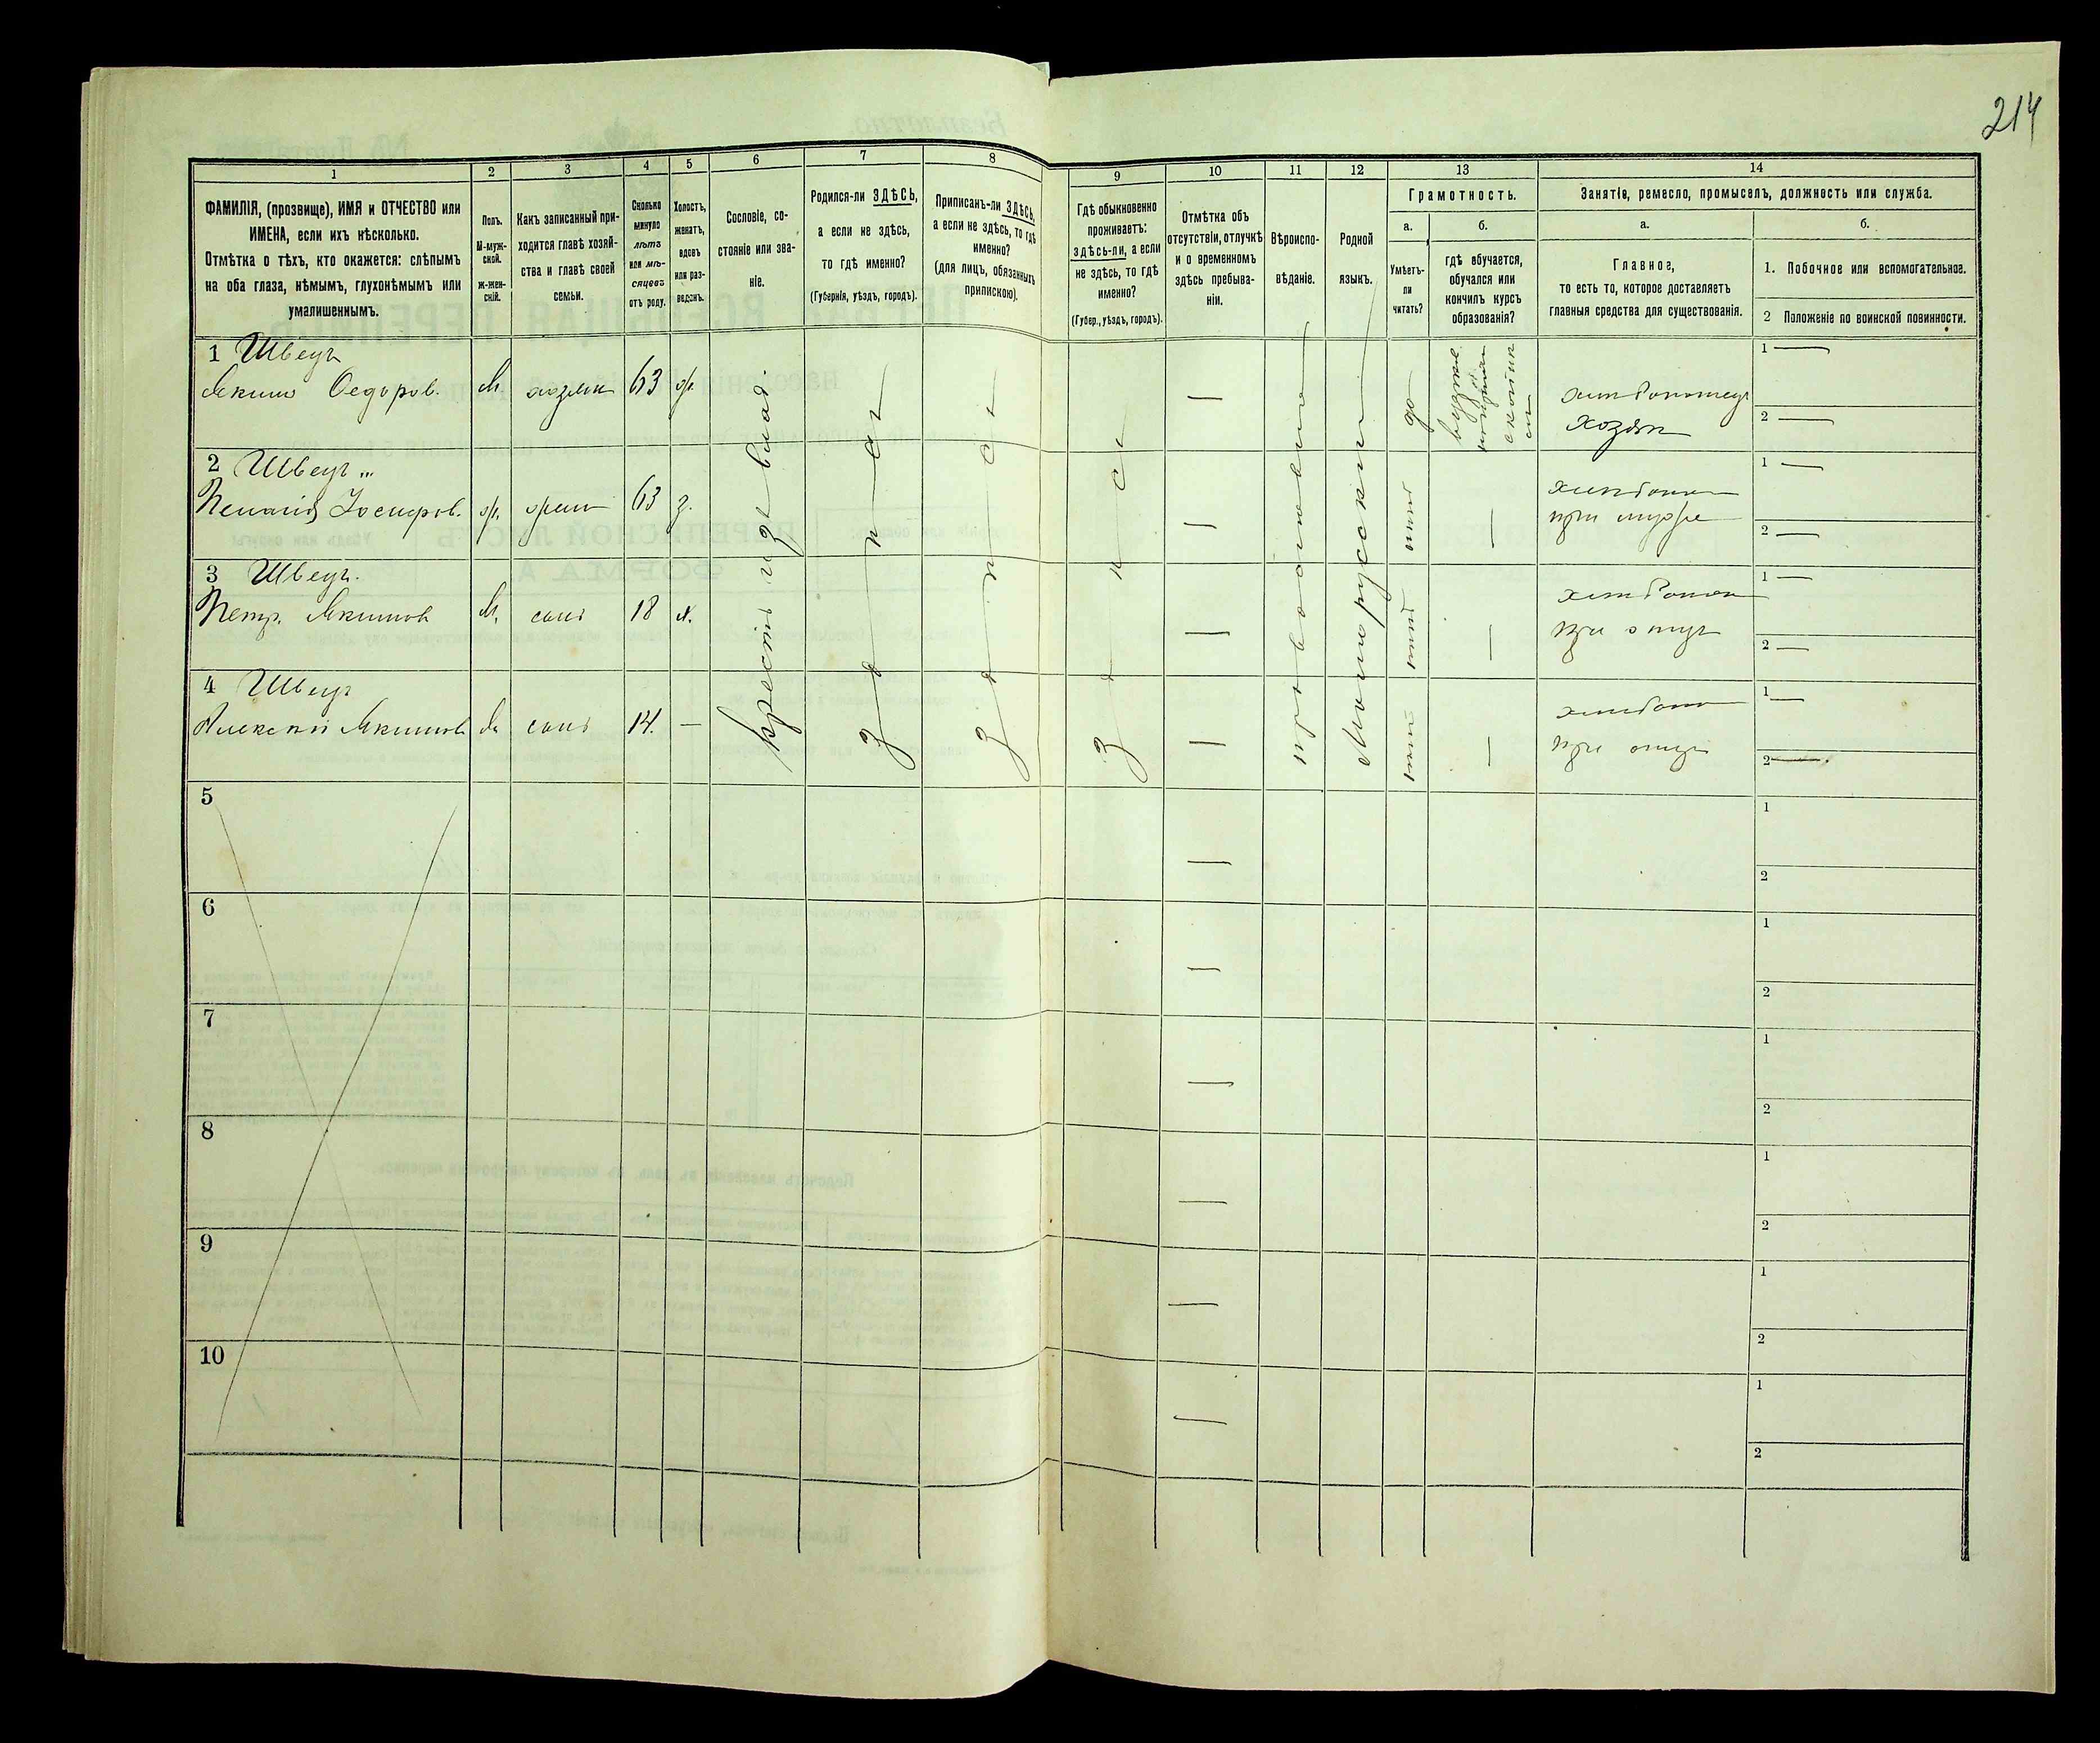 214
1
2
3
4
5
6
7
8
9
10
11
12
13
14
ФАМИЛІЯ, (прозвище), ИМЯ и ОТЧЕСТВО или
ИМЕНА, если ихъ нѣсколько.
Отмѣтка о тѣхъ, кто окажется: слѣпымъ
на оба глаза, нѣмымъ, глухонѣмымъ или
умалишеннымъ.
Полъ.
М-муж-
ской.
ж-жен-
скій.
Какъ записанный при-
ходится главѣ хозяй-
ства и главѣ своей
семьи.
Сколько
минуло
лѣтъ
или мѣ-
сяцевъ
отъ роду.
Холостъ,
женатъ,
вдовъ
или раз-
веденъ.
Сословіе, со-
стояніе или зва-
ніе.
Родился-ли ЗДѢСЬ,
а если не здѣсь,
то гдѣ именно?
(Губернія, уѣздъ, городъ).
Приписанъ-ли ЗДѢСЬ,
а если не здѣсь, то гдѣ
именно?
(для лицъ, обязанныхъ
припискою).
Гдѣ обыкновенно
проживаетъ:
здѣсь-ли, а если
не здѣсь, то гдѣ
именно?
(Губер., уѣздъ, городъ).
Отмѣтка объ
отсутствіи, отлучкѣ
и о временномъ
здѣсь пребыва-
ніи.
Вѣроиспо-
вѣданіе.
Родной
языкъ.
Грамотность.
а.
Умѣетъ-
ли
читать?
б.
гдѣ обучается,
обучался или
кончилъ курсъ
образованія?
Занятіе, ремесло, промыселъ, должность или служба.
а.
Главное,
то есть то, которое доставляетъ
главныя средства для существованія.
б.
1. Побочное или вспомогательное.
2 Положеніе по воинской повинности.
1 Швецъ
Якимъ Федоров. М хозяин 63 ж.
да
Хозяин
1
2
2 Швецъ
ж. 63 з.
при мужѣ
1
2
3 Швецъ.
Петр. Якимов М. сынъ 18 х.
при отцѣ
1
2
4 Швецъ
Алексѣй Якимов М сынъ 14. —
при отцѣ
1
2
Крестьян. из влад.
здѣсь
здѣсь
здѣсь
православный
Малорусскій
5
1
2
6
1
2
7
1
2
8
1
2
9
1
2
10
1
2